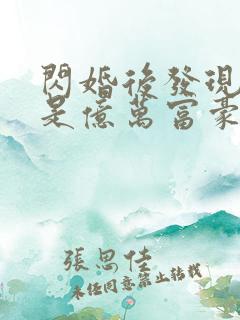 閃婚後發現
是億萬富豪
張思佳
未經同意禁止轉載